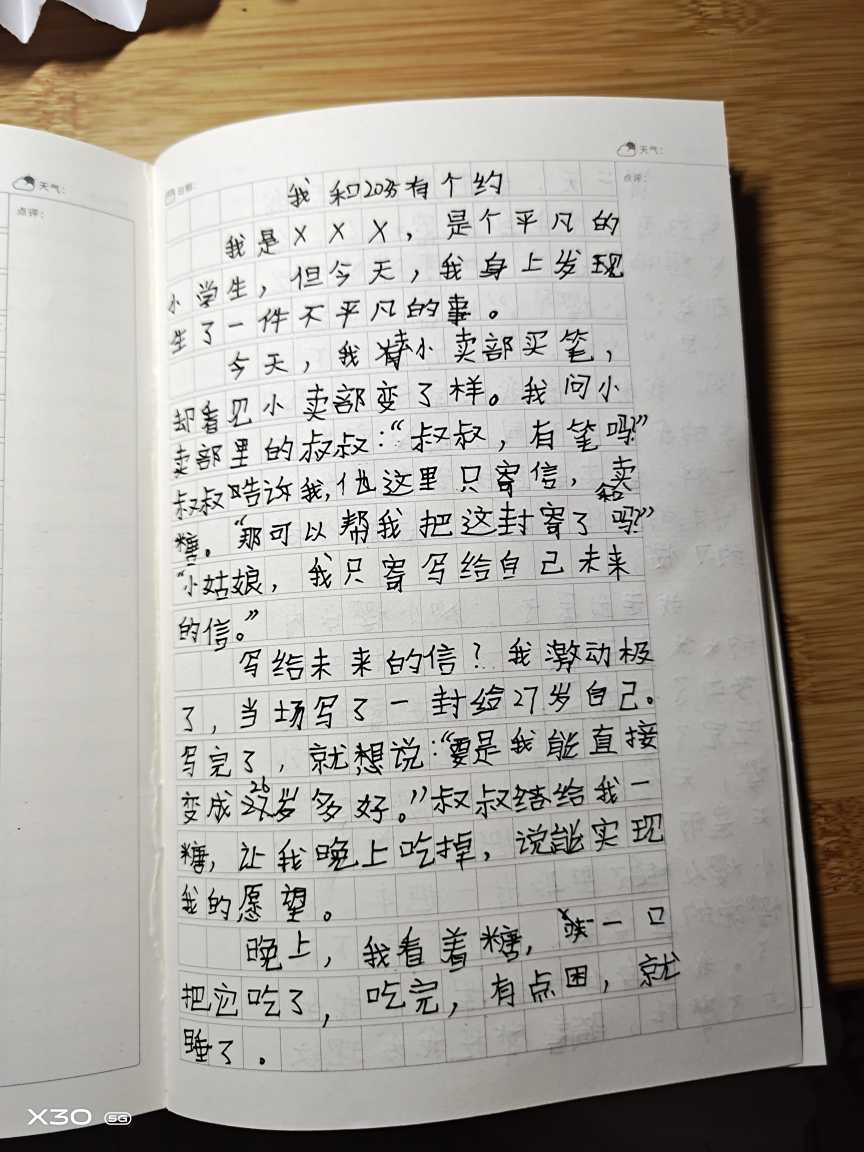 天气：
点评：
日期：
天气：
点评：
我和20岁有个约
我是XXX，是个平凡的
小学生，但今天，我身上发现
生了一件不平凡的事。
今天，我去小卖部买笔，
却看见小卖部变了样。我问小
卖部里的叔叔：“叔叔，有笔吗？”
叔叔告诉我，他这里只寄信，卖
糖。“那可以帮我把这封寄了吗？”
“小姑娘，我只寄写给自己未来
的信。”
写给未来的信？我激动极
了，当场写了一封给27岁自己。
写完了，就想说：“要是我能直接
变成26岁多好。”叔叔结给我一
糖，让我晚上吃掉，说能实现
我的愿望。
晚上，我看着糖，一口
把它吃了，吃完，有点困，就
睡了。
X30 5G